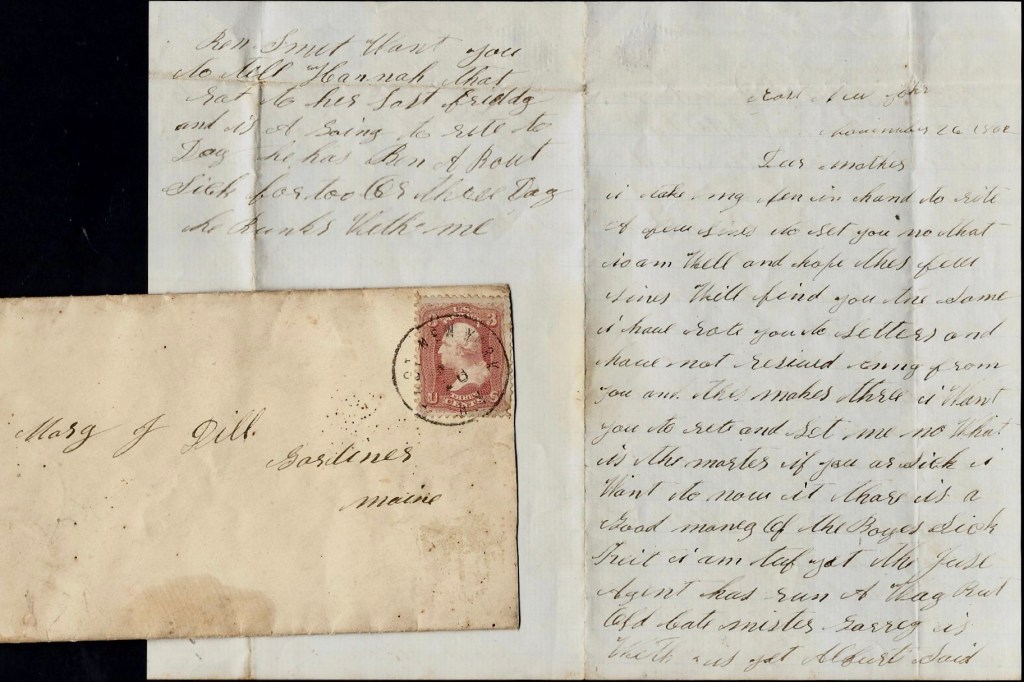 Ben Smit Want you
to tell Hannah that
rat to her Last friddy
and is A Going to rite to
Day he has Ben A Bout
Sick for too Or three Day
he Bunks With me
East New York
November 26 1862
Dear Mother
i take my pen in hand to rite
A few Lines to Let you no that
i am Well and hope thes few
Lines Will find you the Same
i have rote you to Letters and
have not resived Anny from
you and this makes three i Want
you to rite and Let me no What
is the marter if you ar Sick i
Want to now it thare is a
Good maney Of the Boyes Sick
But i am tuf yet the
Agent has run A Way But
Old Cate mister Garrey is
With us yet Alburt Said
U.S.
3
NEW Y
THREE
CENTS
U S
Mary J Dill.
Gardiner
maine